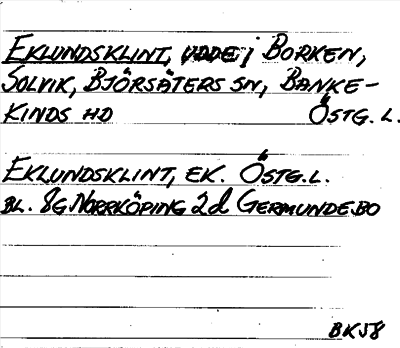 EKLUNDSKLINT, udde i BORKEN,
SOLVIK, BJÖRSÄTERS SN, BANKE-
KINDS HD ÖSTG. L.
EKLUNDSKLINT, EK. ÖSTG. L.
BL. 8G NORRKÖPING 2d GERMUNDEBO
BK58